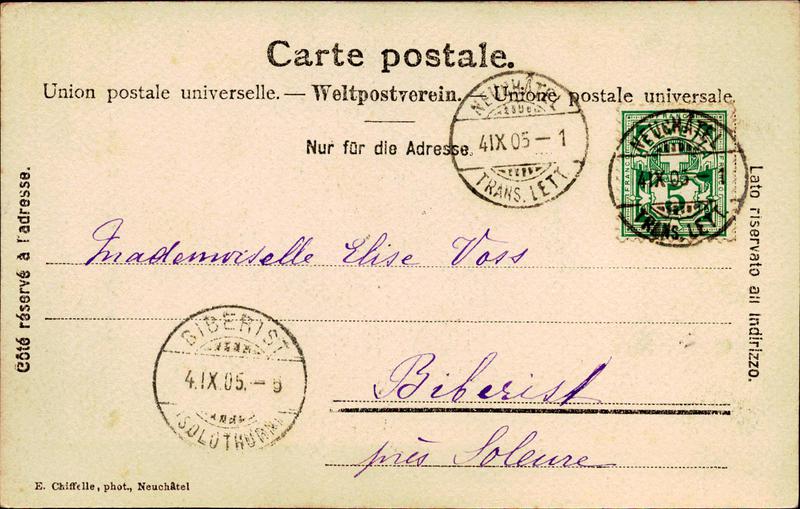 Carte postale.
Union postale universelle. — Weltpostverein. — Unione postale universale
Nur für die Adresse.
NEUCHÂTEL
4 IX 05 — 1
TRANS. LETT
NEUCHÂTEL
4 IX 05 — 1
TRANS. LETT
FRANCO
5
Côté réservé à l'adresse.
Lato riservato all Indirizzo.
Mademoiselle Elise Voss
BIBERIST
4.IX.05. —
(SOLOTHURN)
Biberist
près Soleure
E. Chiffelle, phot., Neuchâtel